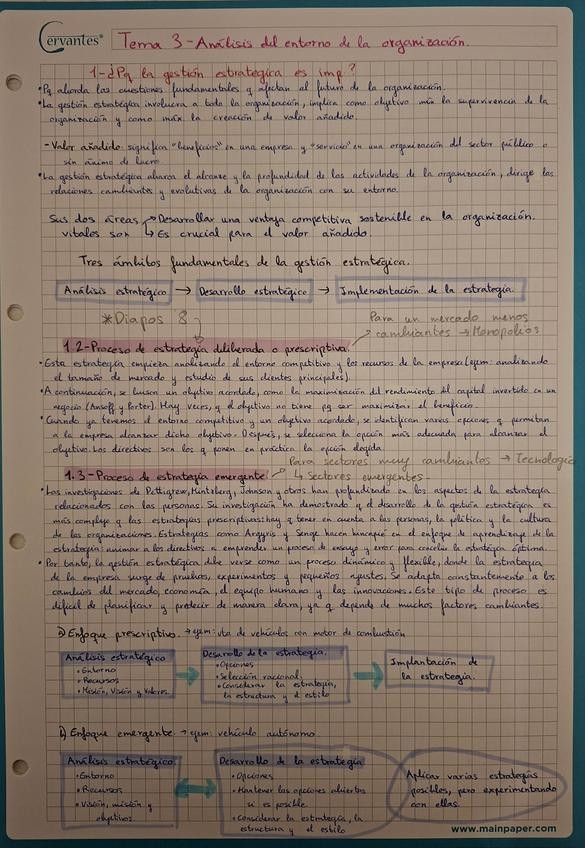 Cervantes®
Tema 3-Análisis del entorno de la organización.
1-¿Pq la gestión estratégica es imp?
•Pq aborda las cuestiones fundamentales q afectan al futuro de la organización.
•La gestión estratégica involucra a toda la organización, implica como objetivo mín la supervivencia de la
organización y como máx la creación de valor añadido.
-Valor añadido: significa "beneficios" en una empresa y "servicio" en una organización del sector público o
sin ánimo de lucro
•La gestión estratégica abarca el alcance y la profundidad de las actividades de la organización, dirige las
relaciones cambiantes y evolutivas de la organización con su entorno.
Sus dos áreas → Desarrollar una ventaja competitiva sostenible en la organización.
vitales son ↳ Es crucial para el valor añadido.
Tres ámbitos fundamentales de la gestión estratégica.
Análisis estratégico → Desarrollo estratégico → Implementación de la estrategia.
*Diapos 8
Para un mercado menos
cambiantes → Monopolios
1.2-Proceso de estrategia deliberada o prescriptiva.
•Esta estrategia empieza analizando el entorno competitivo y los recursos de la empresa (ejem: analizando
el tamaño de mercado y estudio de sus clientes principales).
•A continuación, se busca un objetivo acordado, como la maximización del rendimiento del capital invertido en un
negocio (Ansoff y Porter). Hay veces, q el objetivo no tiene pq ser maximizar el beneficio.
•Cuando ya tenemos el entorno competitivo y un objetivo acordado, se identifican varias opciones q permitan
a la empresa alcanzar dicho objetivo. Después, se selecciona la opción más adecuada para alcanzar el
objetivo. Los directivos son los q ponen en práctica la opción elegida.
Para sectores muy cambiantes → Tecnología
1.3-Proceso de estrategia emergente
↳ Sectores emergentes
•Las investigaciones de Pettigrew, Mintzberg, Johnson y otros han profundizado en los aspectos de la estrategia
relacionados con las personas. Su investigación ha demostrado q el desarrollo de la gestión estratégica es
más complejo q las estrategias prescriptivas: hay q tener en cuenta a las personas, la política y la cultura
de las organizaciones. Estrategias como Argyris y Senge hacen hincapié en el enfoque de aprendizaje de la
estrategia: animar a los directivos a emprender un proceso de ensayo y error para concebir la estrategia óptima.
•Por tanto, la gestión estratégica debe verse como un proceso dinámico y flexible, donde la estrategia
de la empresa surge de pruebas, experimentos y pequeños ajustes. Se adapta constantemente a los
cambios del mercado, economía, el equipo humano y las innovaciones. Este tipo de proceso es
difícil de planificar y predecir de manera clara, ya q depende de muchos factores cambiantes.
a) Enfoque prescriptivo. → ejem: vta de vehículos con motor de combustión
Análisis estratégico
•Entorno
•Recursos
•Misión, Visión y Valores.
Desarrollo de la estrategia.
•Opciones
•Selección racional
•Considerar la estrategia,
la estructura y el estilo
Implantación de
la estrategia.
b) Enfoque emergente → ejem: vehículo autónomo
Análisis estratégico
•Entorno
•Recursos
•Visión, misión y
objetivos.
Desarrollo de la estrategia
•Opciones
•Mantener las opciones abiertas
si es posible.
•Considerar la estrategia, la
estructura y el estilo
Aplicar varias estrategias
posibles, pero experimentando
con ellas.
www.mainpaper.com